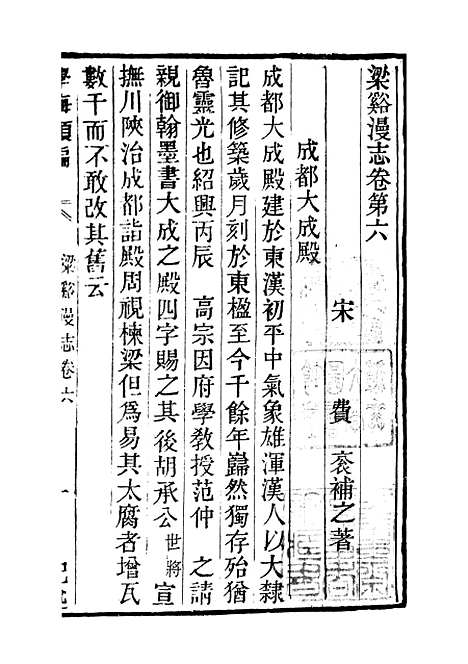 梁谿漫志卷第六
宋 費 袞補之著
成都大成殿
成都大成殿建於東漢初平中氣象雄渾漢人以大隸
記其修築歲月刻於東楹至今千餘年巋然獨存殆猶
魯靈光也紹興丙辰 高宗因府學教授范仲 之請
親御翰墨書大成之殿四字賜之其後胡承公世將宣
撫川陝治成都詣殿周視棟梁但爲易其太腐者增瓦
數千而不敢改其舊云
學海類編 梁谿漫志卷六 一